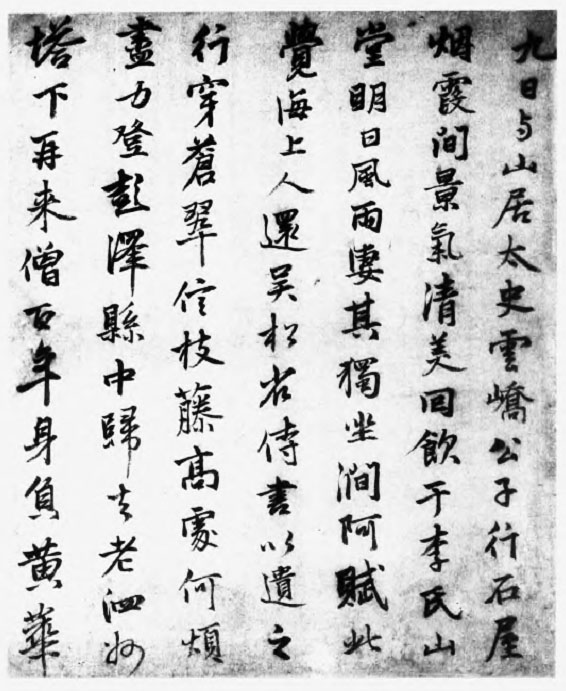 九日与山居太史雲嶠公子行石屋
烟霞间景氣清美回飲于李氏山
堂明日風雨凄其獨坐澗阿賦此
覺海上人還吳松省侍書以遺之
行穿蒼翠信枝藤高處何煩
盡力登彭澤縣中歸去老泗州
塔下再來僧百年身負黄華